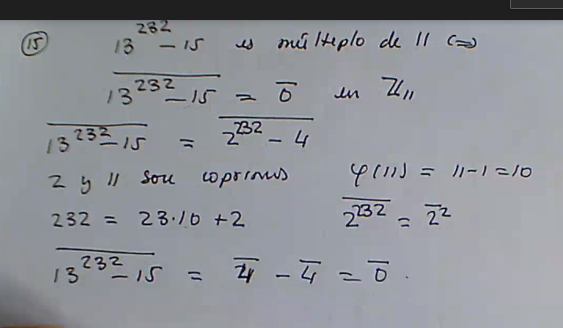 15 13^232 - 15 es múltiplo de 11 ⇔
\overline{13^232 - 15} = \overline{0} en ℤ₁₁
\overline{13^232 - 15} = \overline{2^232 - 4}
2 y 11 son coprimos φ(11) = 11-1 = 10
232 = 23·10 + 2 \overline{2^232} = \overline{2}^2
\overline{13^232 - 15} = \overline{4} - \overline{4} = \overline{0} .